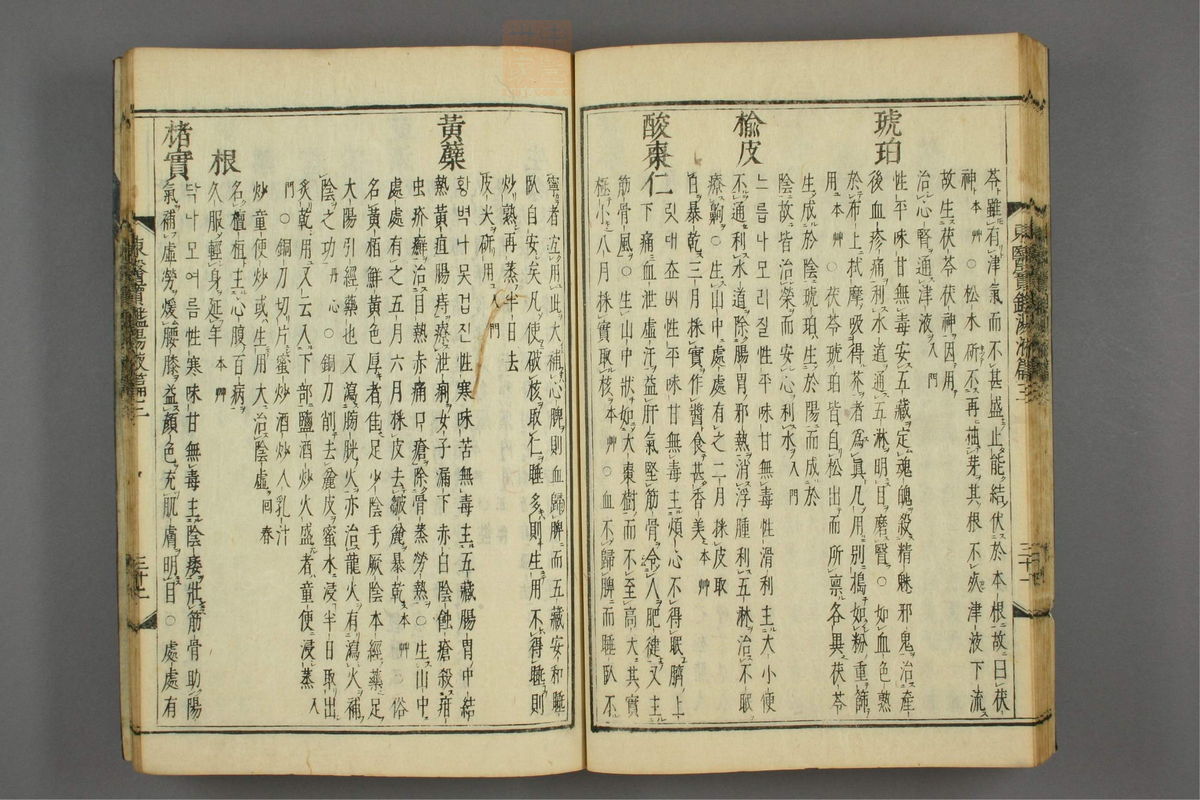 苓雖有津氣而不甚盛止能結伏於本根故曰茯
神本艸○松木斫不再抽芽其根不死津液下流
故生茯苓茯神因用
治心腎通津液入門
琥珀
性平味甘無毒安五藏定魂魄殺精魅邪鬼治産
後血疹痛利水道通五淋明目磨瞖○如血色熟
於布上拭摩吸得芥者爲真凡用別搗如粉重篩
用本艸○茯苓琥珀皆自松出而所禀各異茯苓
生成於陰琥珀生於陽而成於
陰故皆治榮而安心利水入門
楡皮
느릅나모겁질性平味甘無毒性滑利主大小便
不通利水道除腸胃邪熱消浮腫利五淋治不眠
療齁○生山中處處有之二月採皮取
白暴乾三月採實作醬食甚香美本艸
酸棗仁
묏대초ᄡᅵ性平味甘無毒主煩心不得眠臍上
下痛血泄虛汗益肝氣堅筋骨令人肥健又主
筋骨風○生山中狀如大棗樹而不至高大其實
極小八月採實取核本艸○血不歸脾而睡臥不
寧者宜用此大補心脾則血歸脾而五藏安和睡
臥自安矣凡使破核取仁睡多則生用不得睡則
炒熟再蒸半日去
皮尖研用入門
黃蘗
황벽나못겁질性寒味苦無毒主五藏腸胃中結
熱黃疸腸痔療泄痢女子漏下赤白陰蝕瘡殺疳
虫疥癬治目熱赤痛口瘡除骨蒸勞熱○生山中
處處有之五月六月採皮去皺麁暴乾本艸○俗
名黃栢鮮黃色厚者佳足少陰手厥陰本經藥足
大陽引經藥也又瀉膀胱火亦治龍火有瀉火補
陰之功丹心○銅刀削去麁皮蜜水浸半日取出
炙乾用又云入下部鹽酒炒火盛者童便浸蒸入
門○銅刀切片蜜炒酒炒人乳汁
炒童便炒或生用大治陰虛回春
根
名檀桓主心腹百病
久服輕身延年本艸
楮實
닥나모여름性寒味甘無毒主陰痿壯筋骨助陽
氣補虛勞煖腰膝益顔色充肌膚明目○處處有
東醫寶鑑湯液篇三
三十一
東醫寶鑑湯液篇三
三十二